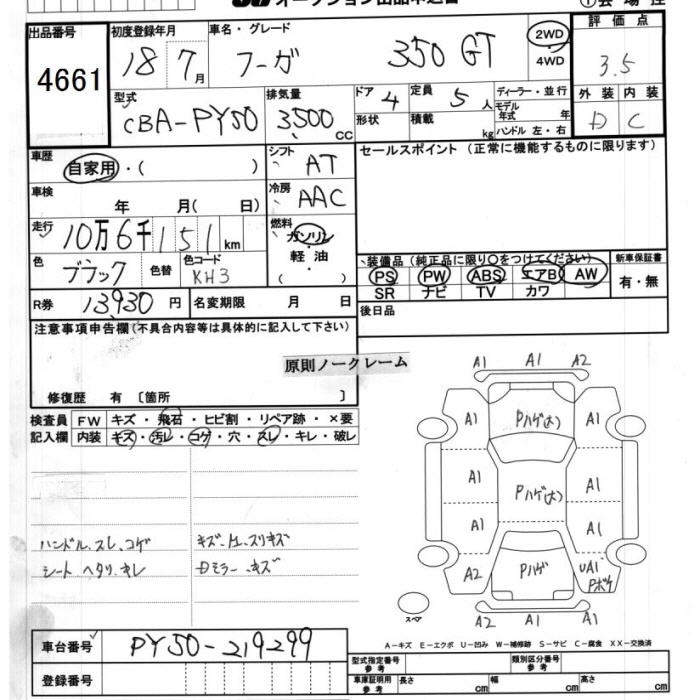 オークション出品申込書
①会場控
出品番号
4661
初度登録年月
18 7月
車名・グレード
フーガ 350 GT
2WD
・
4WD
評価点
3.5
外装 内装
D C
型式
CBA-PY50
排気量
3,500 cc
ドア 4
形状
定員 5 人
積載 kg
ディーラー・並行
モデル年式 年
ハンドル 左・右
車歴
自家用・( )
シフト
AT
セールスポイント (正常に機能するものに限ります)
車検
年 月( 日)
冷房
AAC
走行
10万6千151km
燃料
ガソリン
軽油
・
( )
色
ブラック
色替
色コード
KH3
装備品 (純正品に限り○をつけてください)
PS PW ABS エアB AW
SR ナビ TV カワ
新車保証書
有・無
R券 13,930 円
名変期限 月 日
後日品
注意事項申告欄 (不具合内容等は具体的に記入して下さい)
原則ノークレーム
修復歴 有 〔箇所 〕
検査員
記入欄
FW キズ・飛石・ヒビ割・リペア跡・×要
内装 キズ・汚レ・コゲ・穴・スレ・キレ・破レ
ハンドル、スレ、コゲ
シート、ヘタリ、キレ
Dミラー、キズ
A1 A1 A2
A1 Pハゲ(大) A1
A1 Pハゲ(大) A1
A1 A1
A2 Pハゲ UA1
Pボケ
スペア
A2 A1 A1
A-キズ E-エクボ U-凹み W-補修跡 S-サビ C-腐食 XX-交換済
車台番号
PY50-219299
登録番号
型式指定番号
参考
類別区分番号
参考
車庫証明用
参考
長さ cm
幅 cm
高さ cm